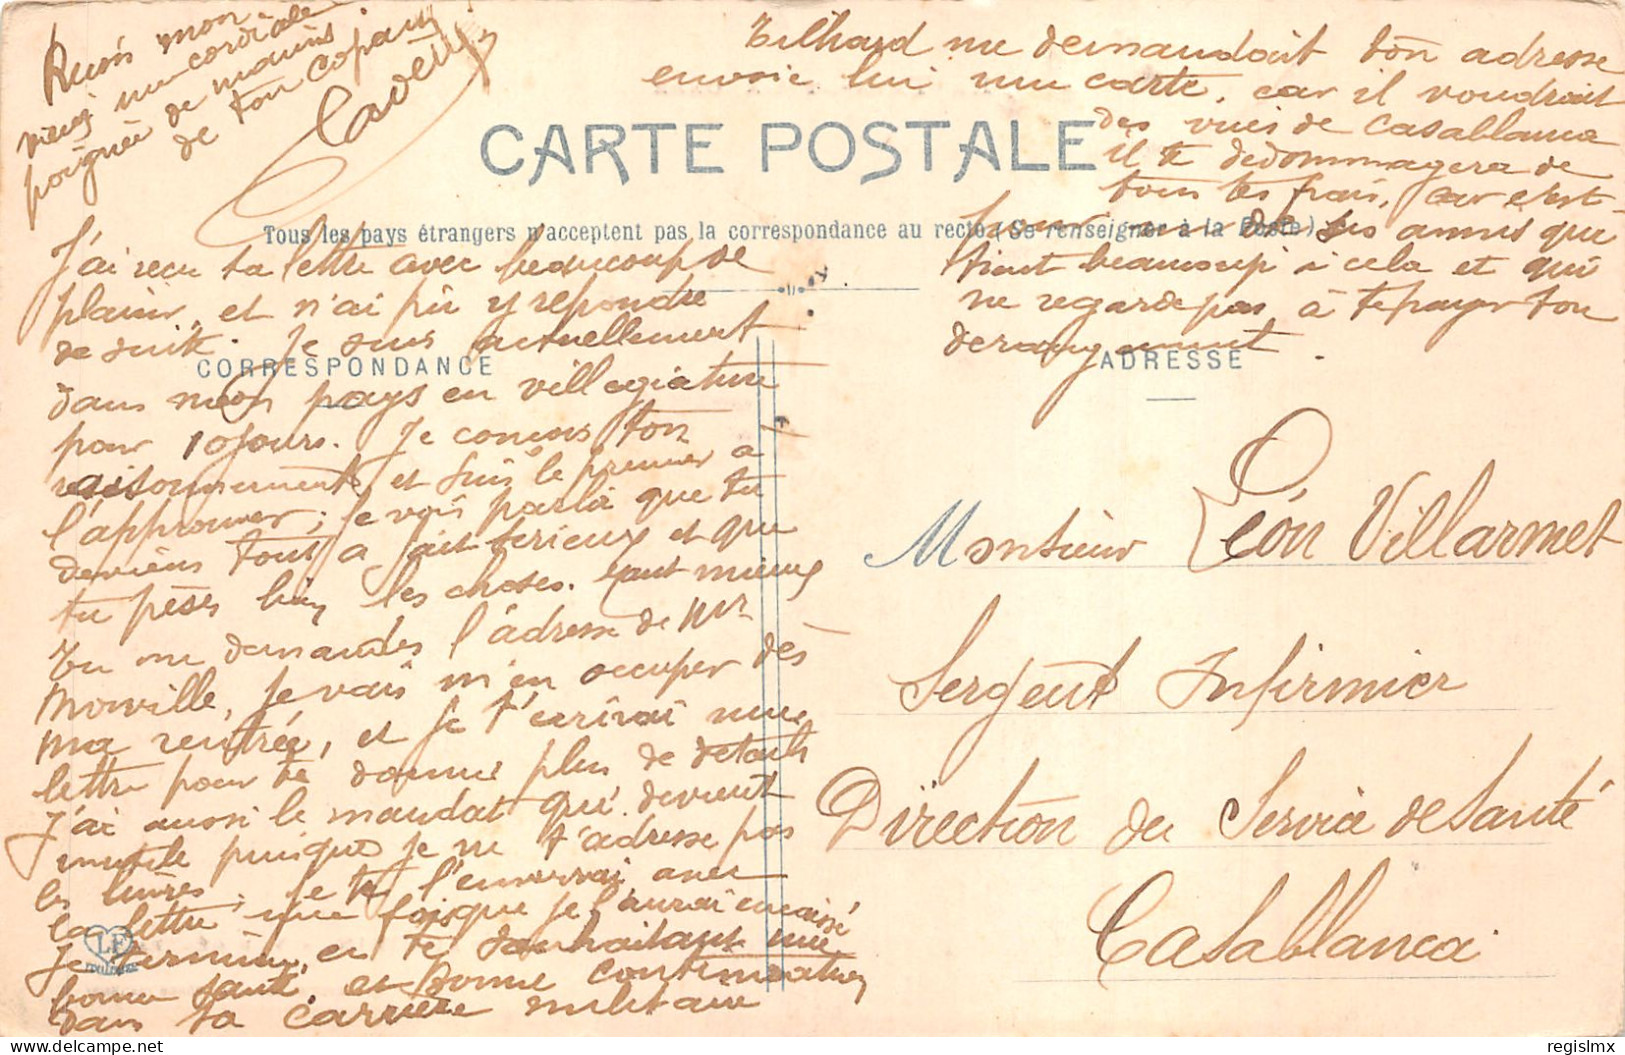 CARTE POSTALE
Tous les pays étrangers n'acceptent pas la correspondance au recto (Se renseigner à la Poste)
CORRESPONDANCE
J'ai reçu ta lettre avec beaucoup de
plaisir, et n'ai pu y repondre
de suite. Je suis actuellement
dans mon pays en villegiature
pour 10 jours. Je conçois ton
raisonnement et suis le premier a
l'approuver; je vois par là que tu
deviens tout a fait serieux et que
tu pèses bien les choses. tant mieux
Tu me demandes l'adresse de Mr
Morville, je vais m'en occuper dès
ma rentrée, et je t'ecrirai une
lettre pour te donner plus de details
J'ai aussi le mandat qui devient
inutile puisque je ne t'adresse pas
les livres; je te l'enverrai avec
la lettre une fois que je l'aurai encaissé
Je termine en te souhaitant une
bonne santé et bonne continuation
dans ta carrière militaire
Reçois mon
vieux une cordiale
poignée de mains
de ton copain
LF
Toulouse
Tilhard me demandait ton adresse
envoie lui une carte, car il voudrait
des vues de Casablanca
il te dedommagera de
tous tes frais, car c'est
pour un de ses amis qui
tient beaucoup à cela et qui
ne regarde pas à te payer ton
derangement.
ADRESSE
Monsieur Léon Villarmet
Sergent Infirmier
Direction du Service de Santé
Casablanca.
regislmx